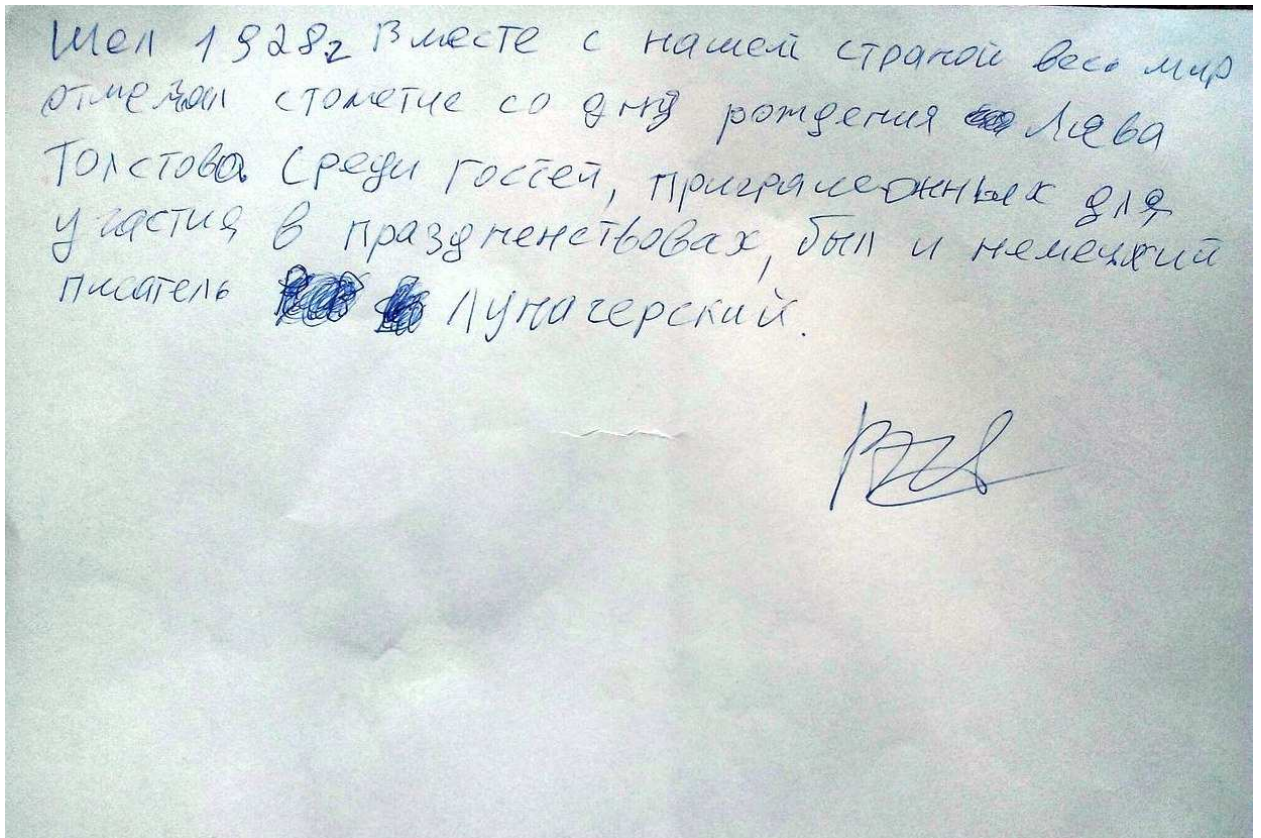 Шел 1928г Вместе с нашей страной весь мир
отмечал столетие со дну рождения Льва
Толстова. Среди гостей, приграшеожных для
участия в праздненствовах, был и немецкий
писатель Луначерский.